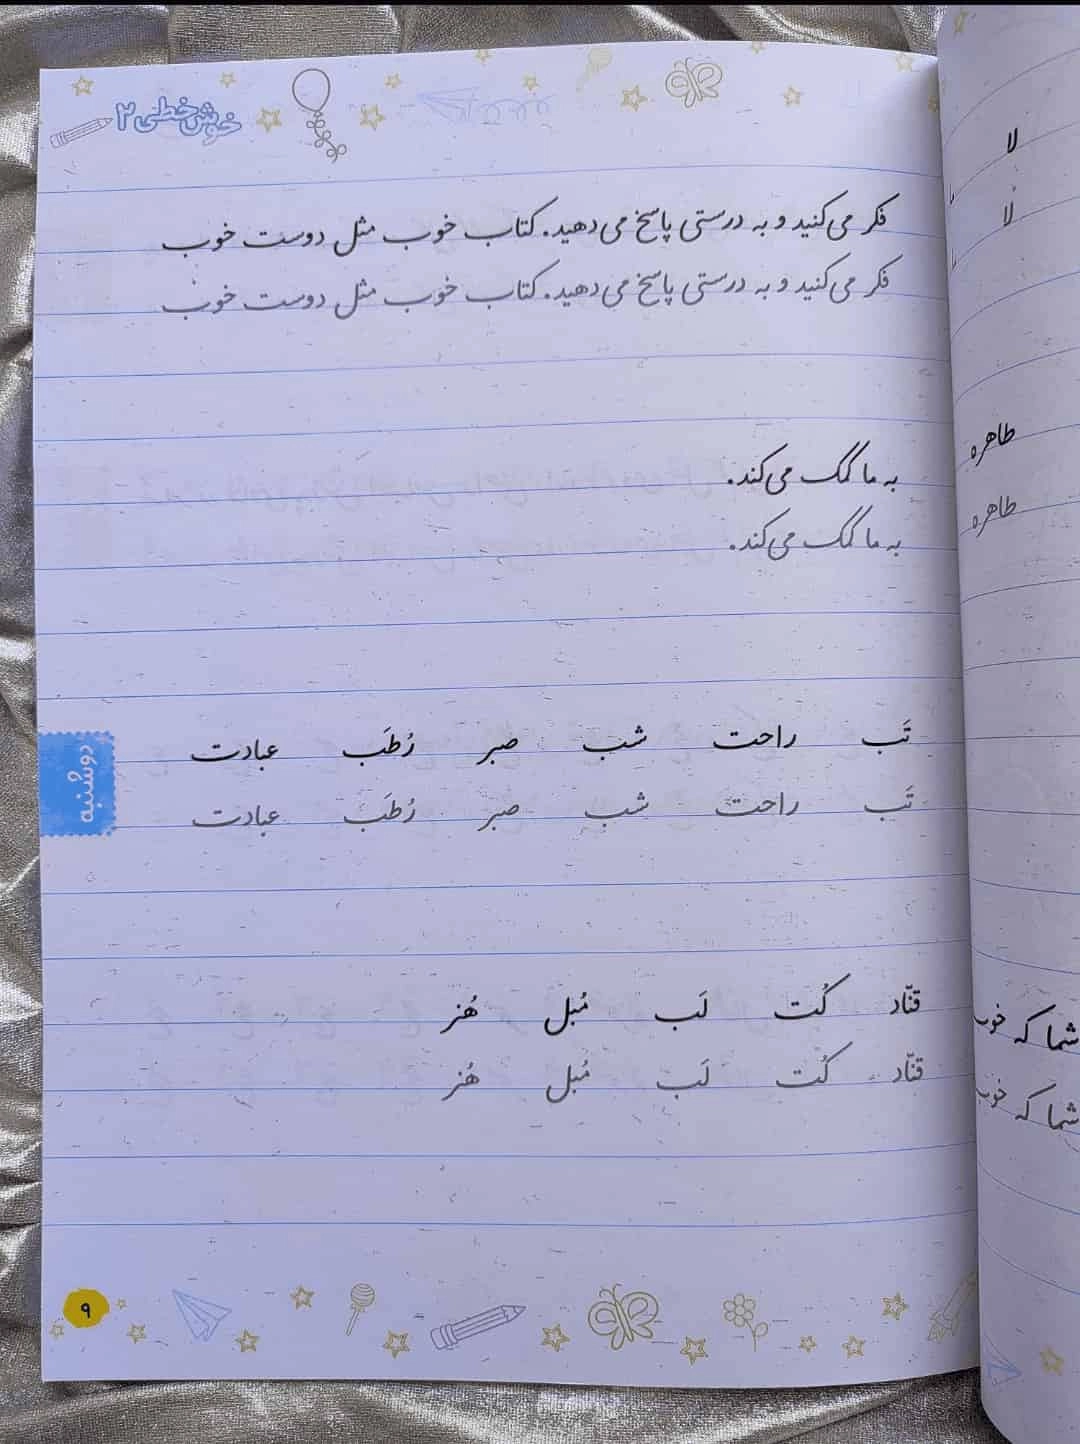 خوش‌خطی ۲
فکر می‌کنید و به درستی پاسخ می‌دهید. کتاب خوب مثل دوست خوب
فکر می‌کنید و به درستی پاسخ می‌دهید. کتاب خوب مثل دوست خوب
به ما کمک می‌کند.
به ما کمک می‌کند.
تَب راحت شب صبر رُطَب عبادت
تَب راحت شب صبر رُطَب عبادت
دوشنبه
قنّاد کُت لَب مُبل هُنر
قنّاد کُت لَب مُبل هُنر
۹
لا
لا
طاهره
طاهره
شما که خوب
شما که خوب